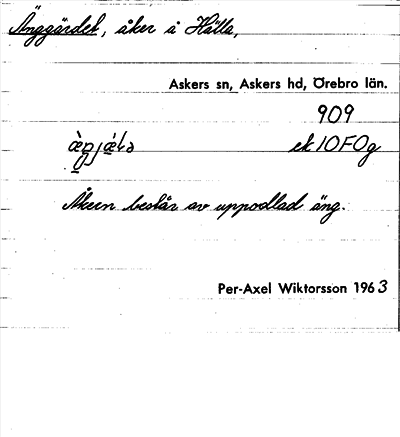 Änggärdet, åker å Hälla,
Askers sn, Askers hd, Örebro län.
909
ek 10F0g
Åkern består av uppodlad äng.
Per-Axel Wiktorsson 1963